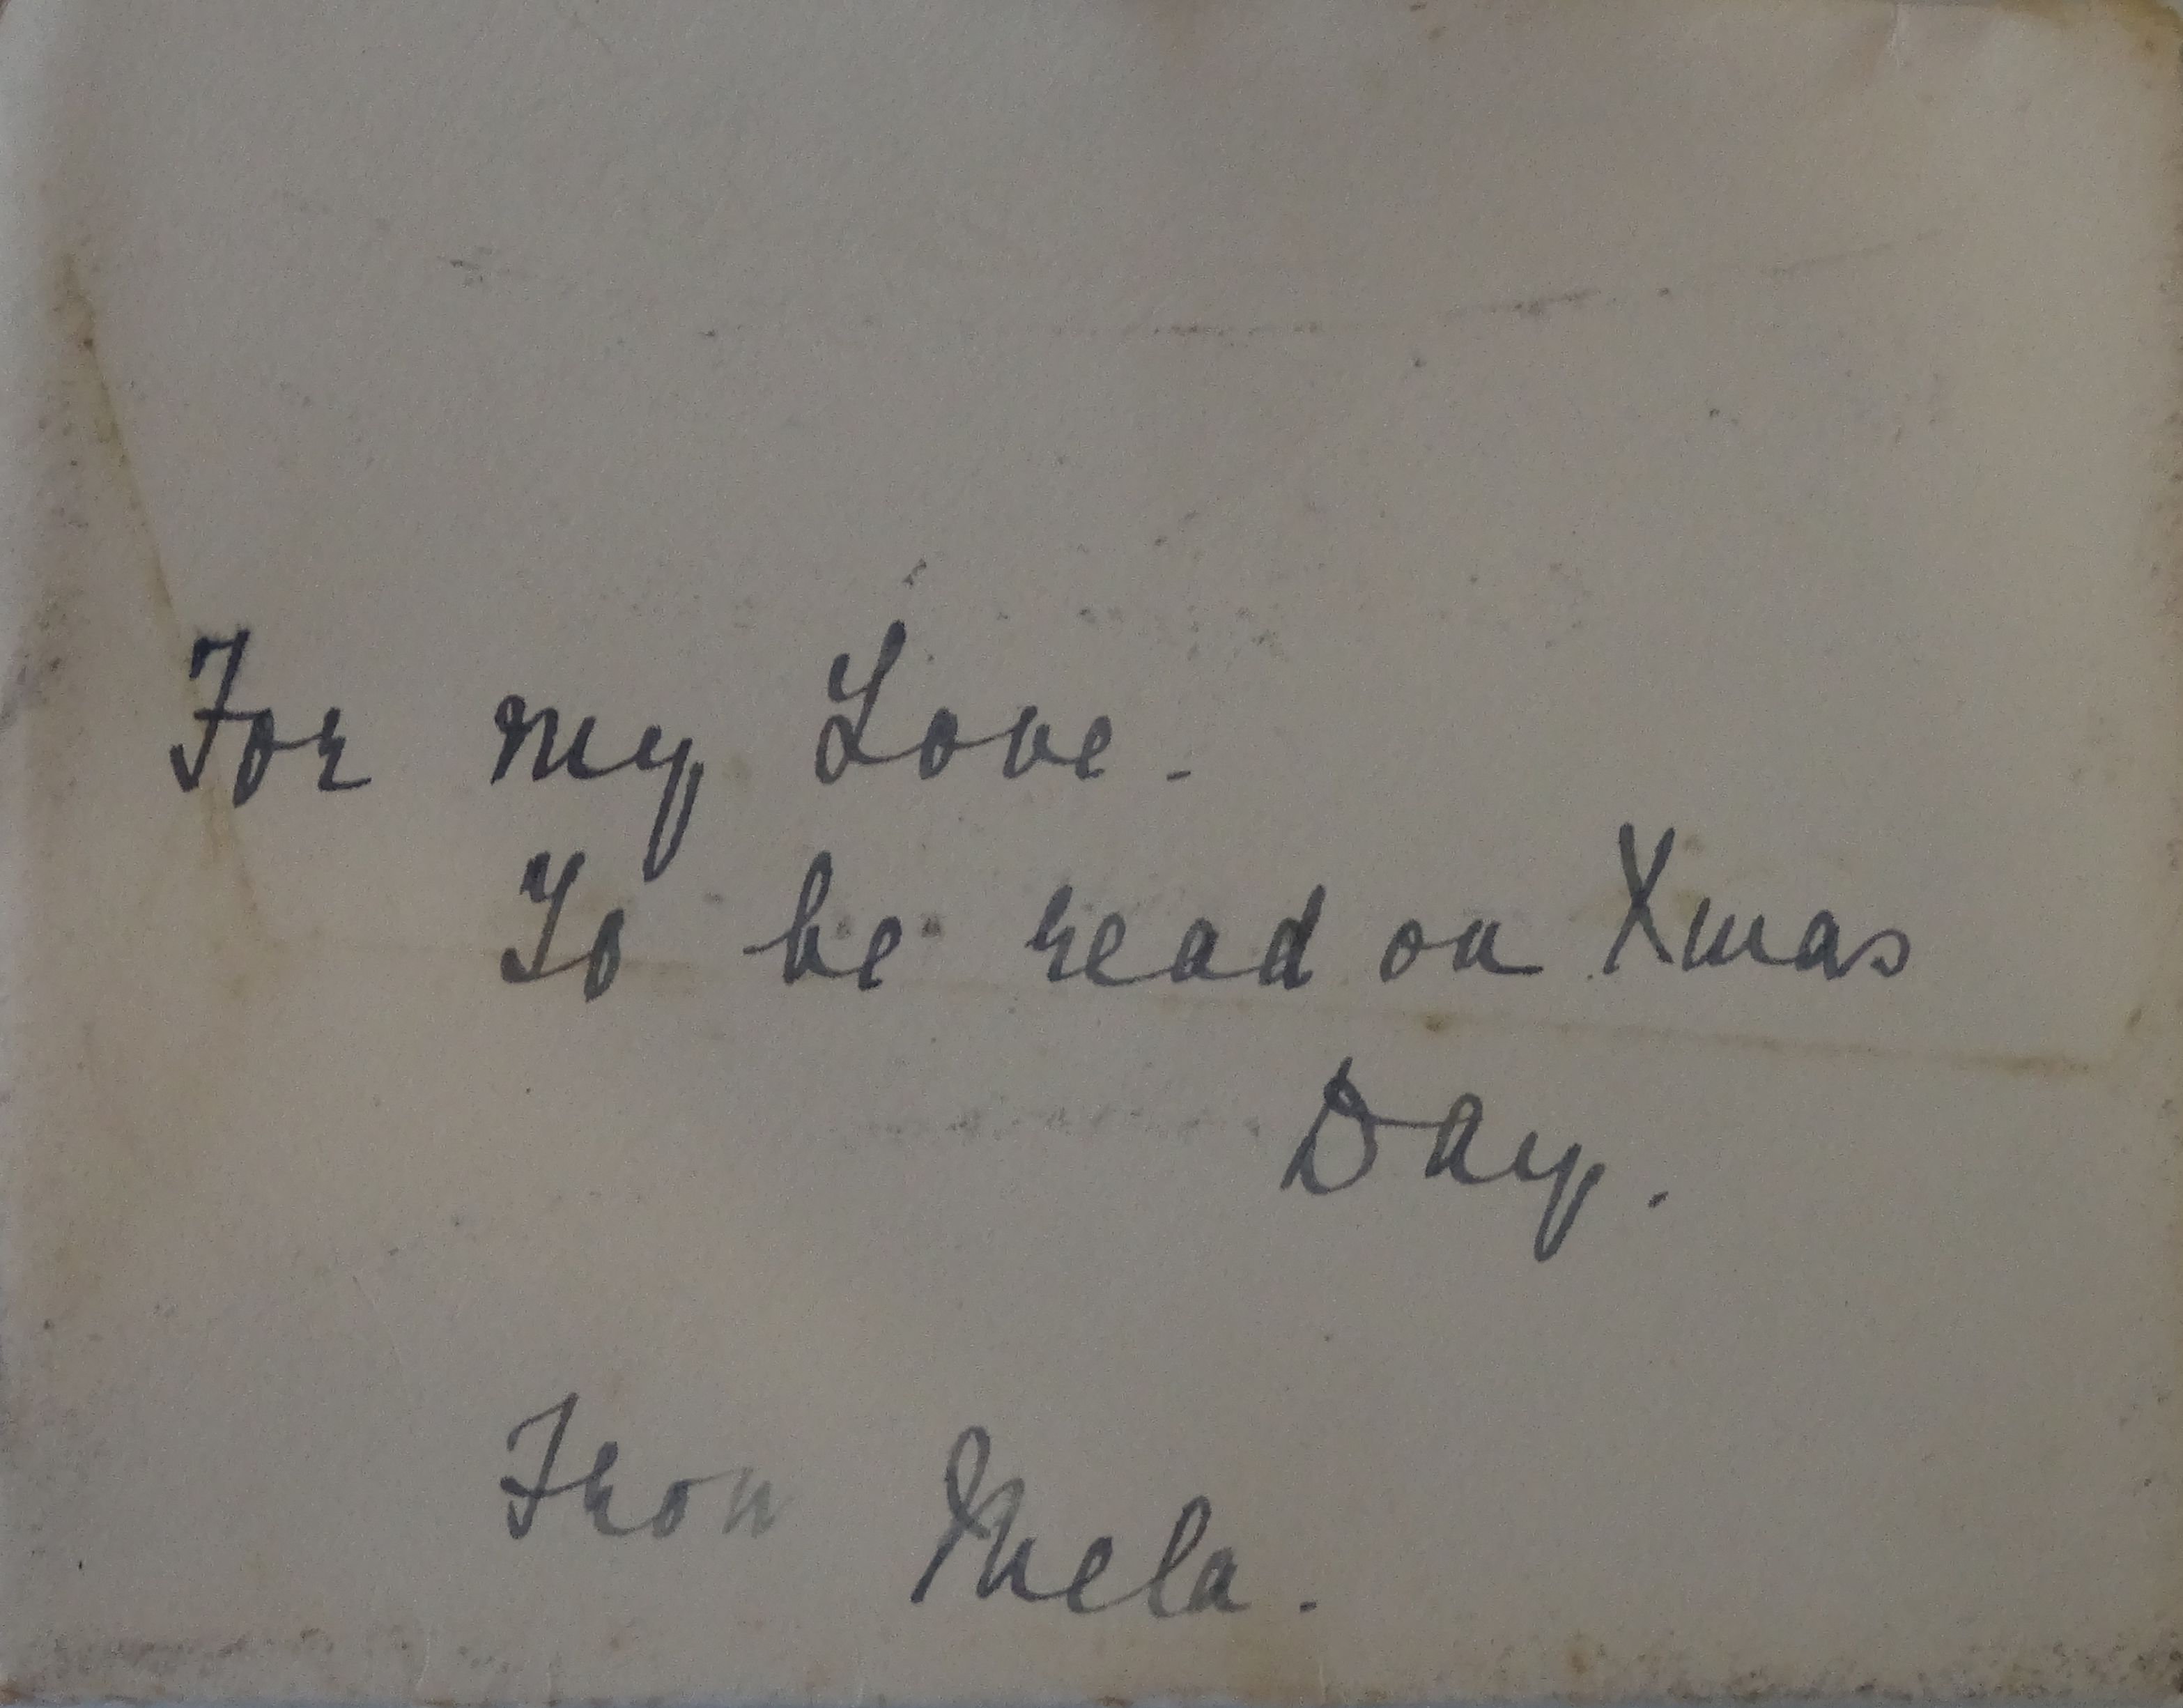 For my Love.
To be read on Xmas
Day.
From Mela.